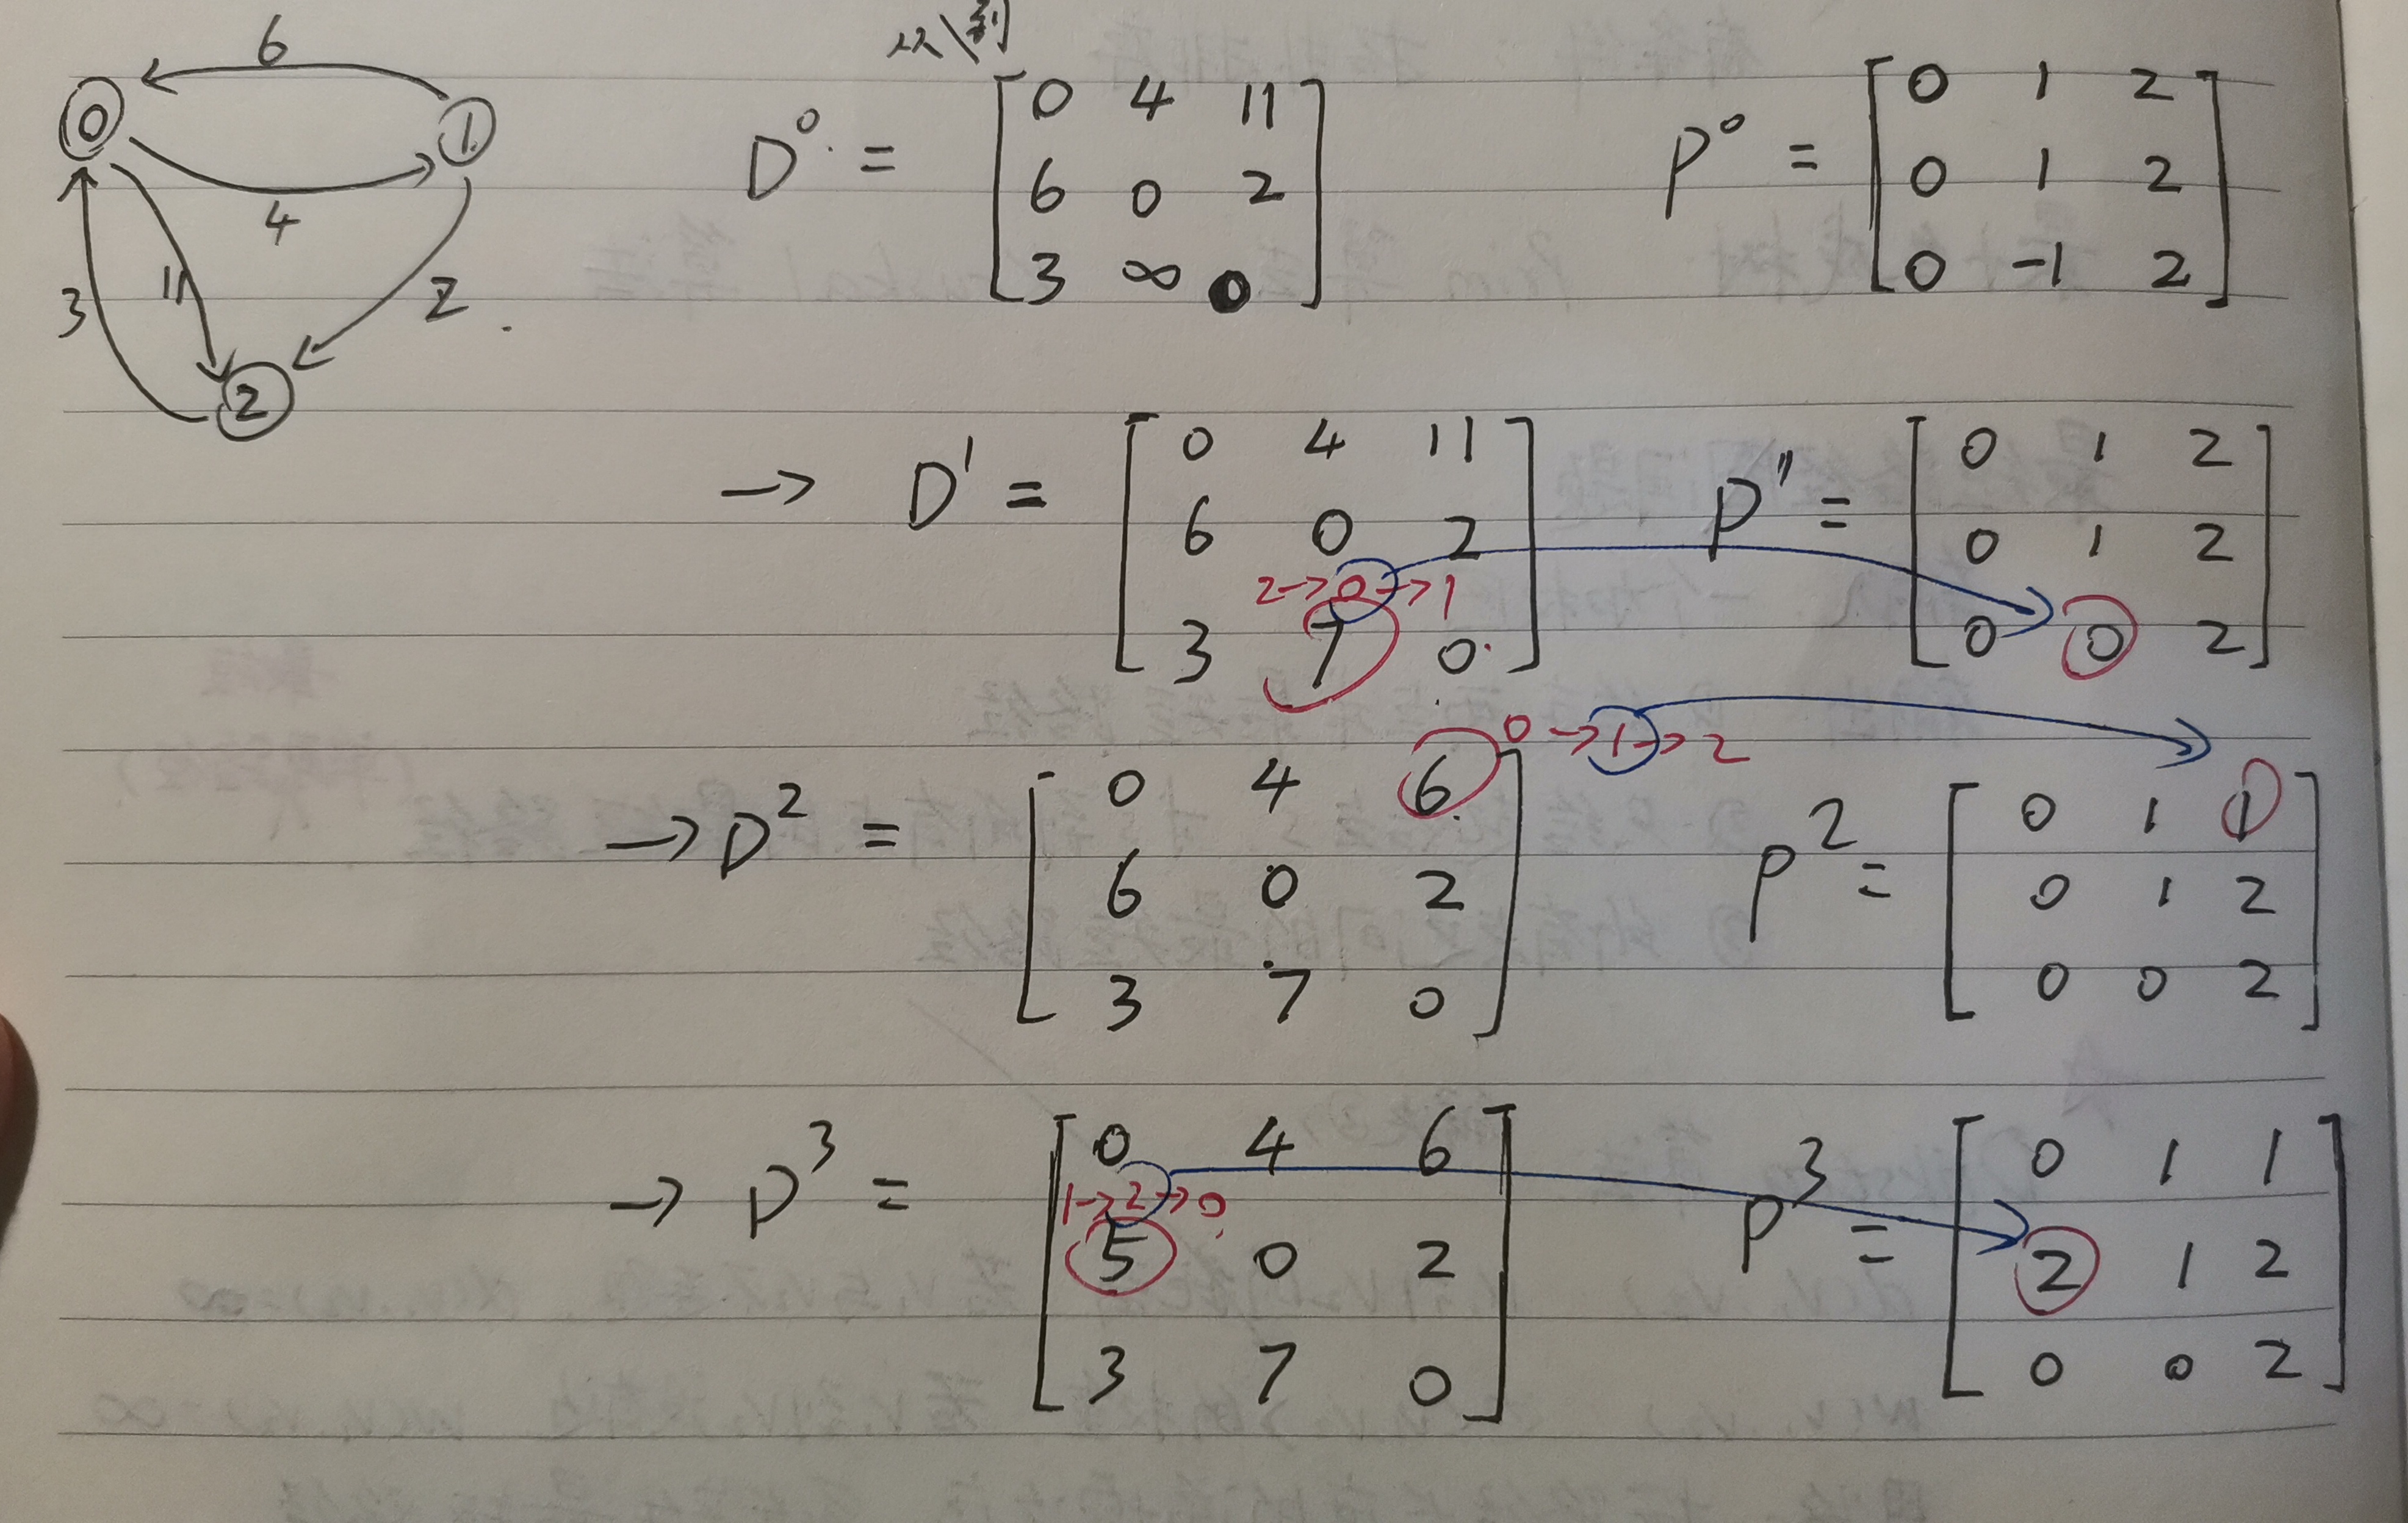 从\到
6
0 1
4
11
3
2
2
D⁰ = [0 4 11
6 0 2
3 ∞ 0]
P⁰ = [0 1 2
0 1 2
0 -1 2]
→ D¹ = [0 4 11
6 0 2
3 7 0]
2→0→1
P¹ = [0 1 2
0 1 2
0 0 2]
0→1→2
→ D² = [0 4 6
6 0 2
3 7 0]
P² = [0 1 1
0 1 2
0 0 2]
→ D³ = [0 4 6
5 0 2
3 7 0]
1→2→0
P³ = [0 1 1
2 1 2
0 0 2]